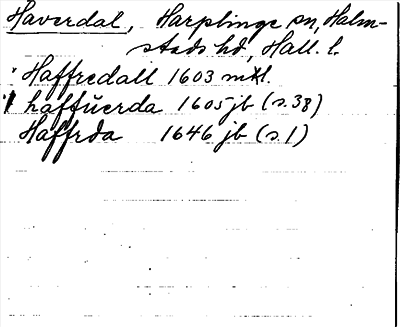 Haverdal, Harplinge sn, Halm-
stads hd, Hall. l.
Haffredall 1603 mtl.
haffuerda 1605 jb (s.38)
Haffrda 1646 jb (s.1)